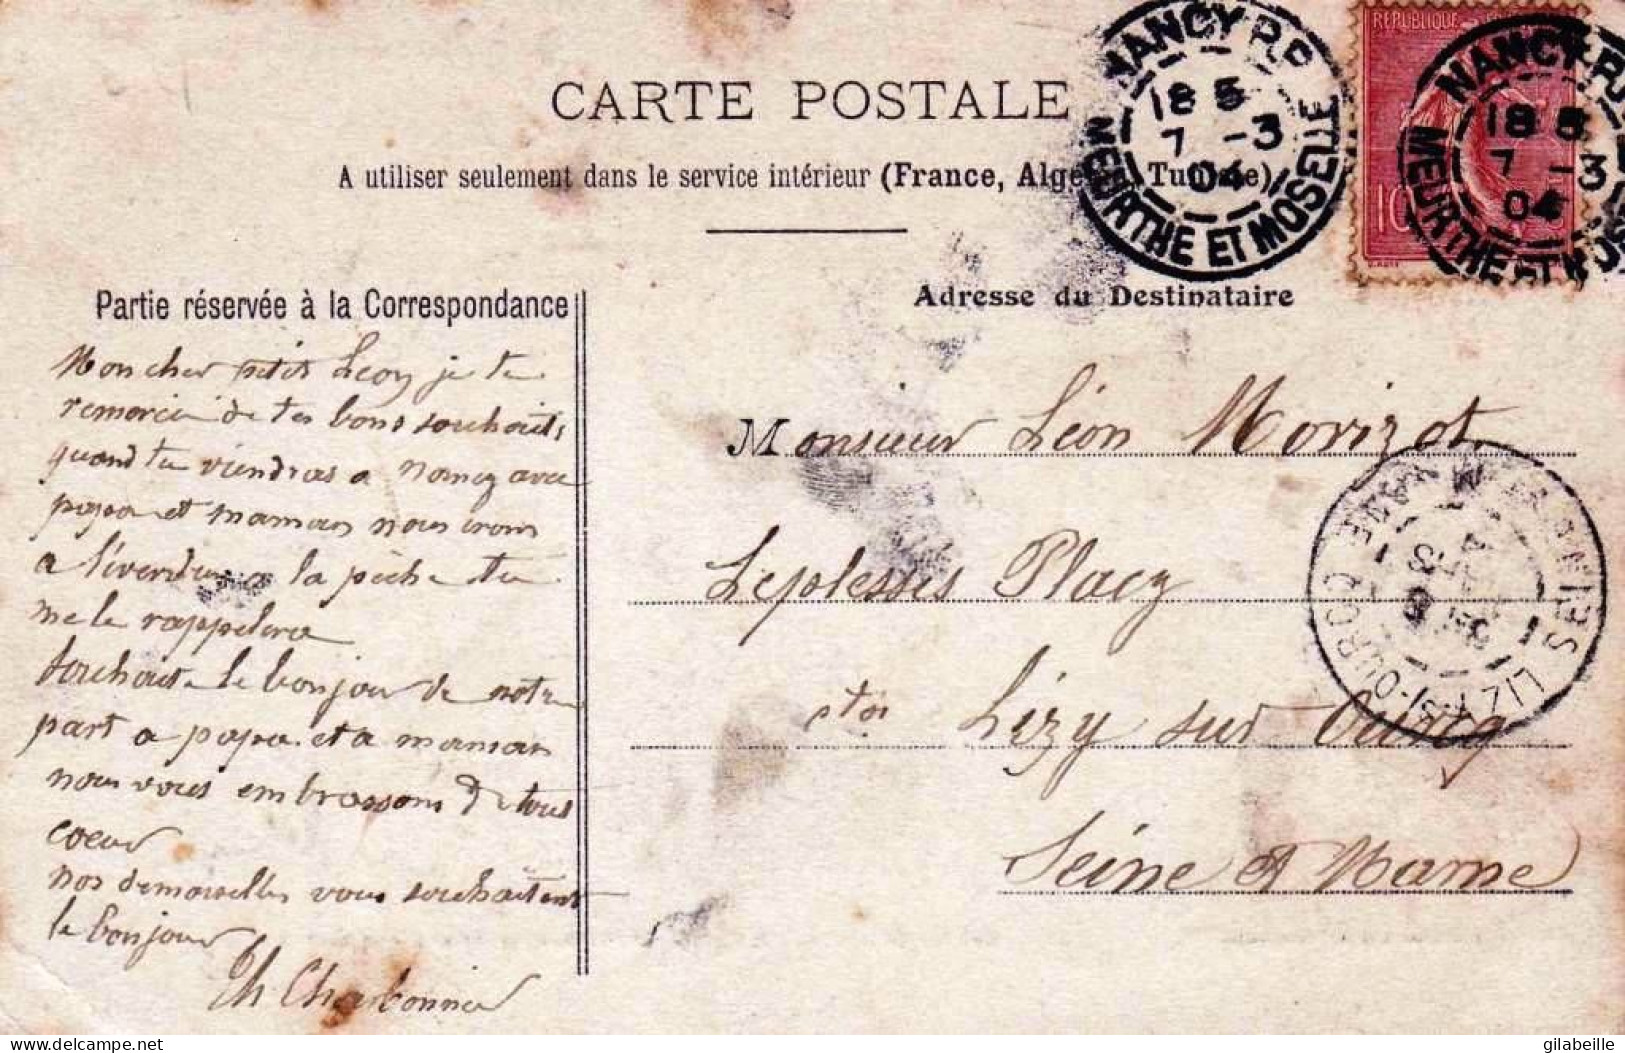 CARTE POSTALE
A utiliser seulement dans le service intérieur (France, Algé Tunisie)
NANCY R.P.
18 5
7 -3
04
MEURTHE ET MOSELLE
REPUBLIQUE
10
NANCY R.P.
18 5
7 -3
04
MEURTHE ET MOS
Partie réservée à la Correspondance
Mon cher petit Leon je te
remercie de tes bons souhaits
quand tu viendras a nancy avec
papa et maman nous irons
a la pêche tu
me le rappelera
souhaite le bonjour de notre
part a papa et a maman
nous vous embrassons de tous
coeur
nos demoiselles vous souhaitent
le bonjour
Th Charbonnier
Adresse du Destinataire
Monsieur Léon Morizot
Leplessis Placy
Lizy sur Ourcq
Seine et Marne
LIZY-S-OURCQ
SEINE ET MARNE
delcampe.net
gilabeille